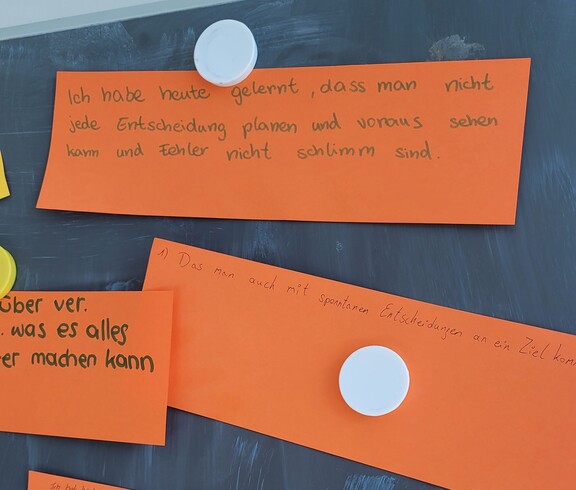 Ich habe heute gelernt, dass man nicht
jede Entscheidung planen und voraus sehen
kann und Fehler nicht schlimm sind.
1) Das man auch mit spontanen Entscheidungen an ein Ziel
über ver.
. was es alles
er machen kann